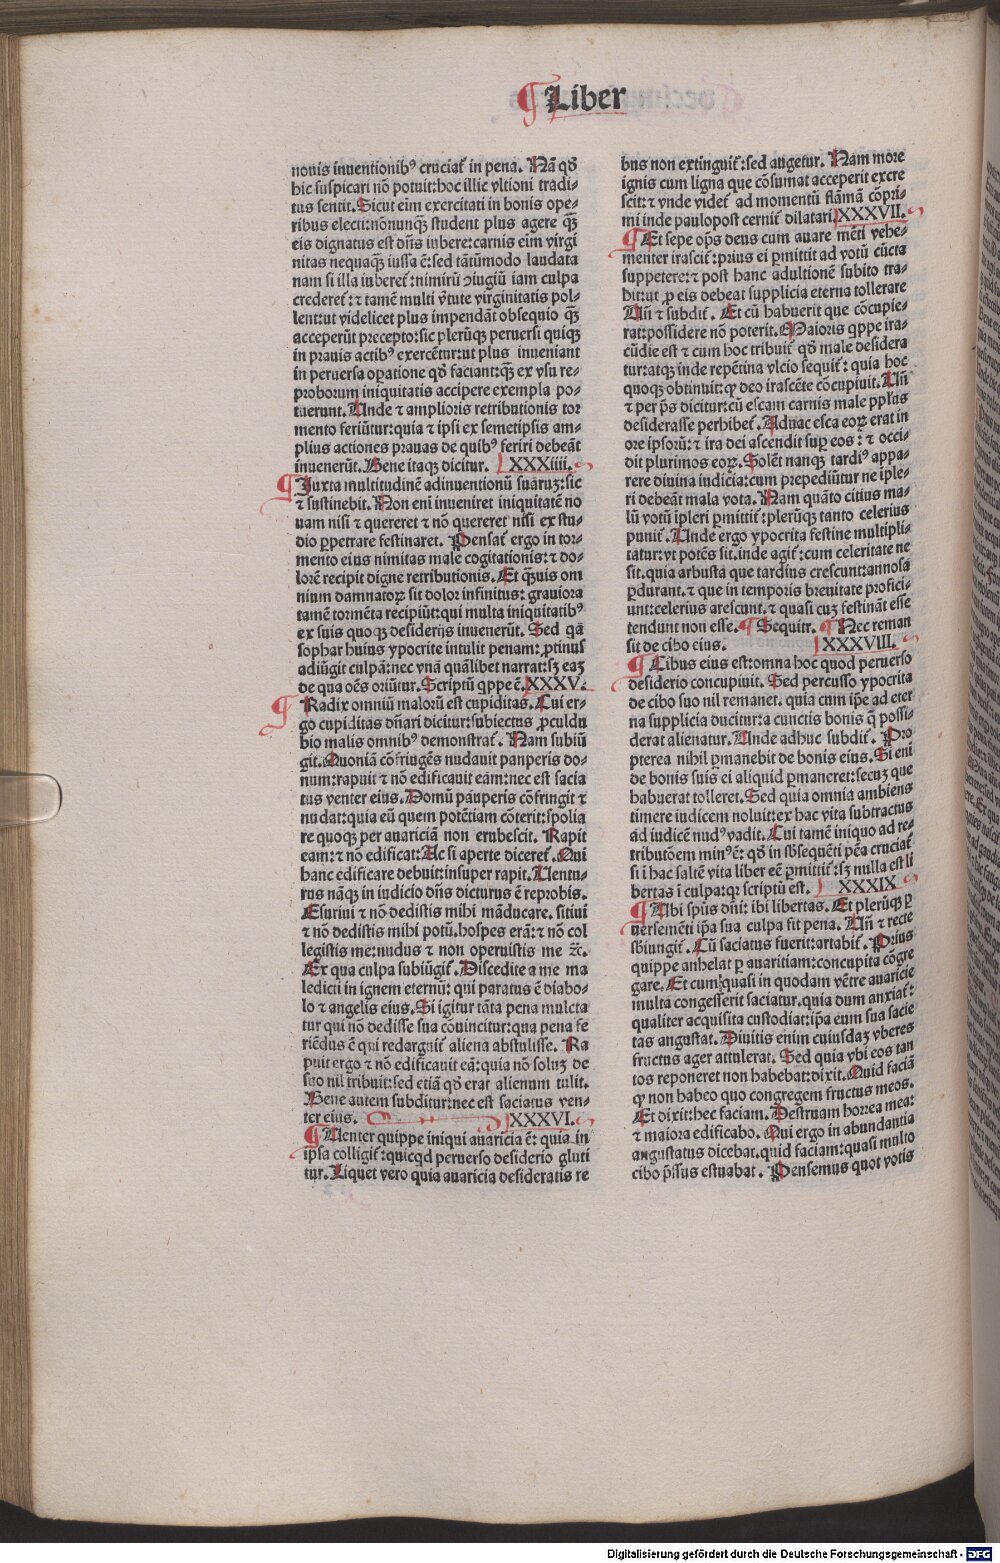 ¶Liber
nonis inventionibꝰ cruciat᷑ in pena. Nã qđ
hic suspicari nõ potuit:hoc illic vltioni tradi-
tus sentit. Sicut eim exercitati in bonis ope-
ribus electi:nõnunq̃ʒ student plus agere q̃ʒ
eis dignatus est dñs iubere:carnis eim virgi
nitas nequaq̃ʒ iussa ẽ:sed tãtũmodo laudata
nam si illa iuberet᷑:nimirũ ꝯiugiũ iam culpa
crederet᷑:⁊ tamẽ multi ṽtute virginitatis pol-
lent:ut videlicet plus impendãt obsequio q̃ʒ
acceperũt precepto:sic plerũqʒ perversi quiqʒ
in prauis actibꝰ exercẽtur:ut plus inveniant
in perversa oꝑatione qđ faciant:q̃ʒ ex vsu re-
proborum iniquitatis accipere exempla po-
tuerunt. Unde ⁊ amplioris retributionis tor
mento feriũtur:quia ⁊ ipsi ex semetipsis am-
plius actiones prauas de quibꝰ feriri debeãt
invenerũt. Bene itaqʒ dicitur. XXXiiii.
¶Juxta multitudinẽ adinventionũ suãruʒ:sic
⁊ sustinebit. Non eni inveniret iniquitatẽ no
uam nisi ⁊ quereret ⁊ nõ quereret nisi ex stu-
dio ꝑpetrare festinaret. Pensat᷑ ergo in tor-
mento eius nimitas male cogitationis:⁊ do-
lorẽ recipit digne retributionis. Et q̃ʒuis om
nium damnatoꝝ sit dolor infinitus: graviora
tamẽ tormẽta recipiũt:qui multa iniquitatibꝰ
ex suis quoqʒ desiderijs invenerũt. Sed qã
sophar huius ypocrite intulit penam:ꝓtinus
adiũgit culpã:nec vnã quãlibet narrat:sʒ eaʒ
de qua oẽs oriũtur. Scriptũ q̃ppe ẽ. XXXV.
¶Radix omniũ malorũ est cupiditas. Cui er-
go cupiditas dñari dicitur:subiectus ꝓculdu
bio malis omnibꝰ demonstrat᷑. Nam subiũ
git. Quoniã cõfringẽs nudavit pauperis do-
num:rapuit ⁊ nõ edificavit eam:nec est sacia
tus venter eius. Domũ pauperis cõfringit ⁊
nudat:quia eũ quem potẽtiam cõterit:spolia
re quoqʒ per avariciã non erubescit. Rapit
eam:⁊ nõ edificat:Ac si aperte diceret᷑. Qui
hanc edificare debuit:insuper rapit. Uentu-
rus nãqʒ in iudicio dñs dicturus ẽ reprobis.
Esurivi ⁊ nõ dedistis mihi mãducare. sitivi
⁊ nõ dedistis mihi potũ.hospes erã:⁊ nõ col
legistis me:nudus ⁊ non operuistis me ⁊c̃.
Ex qua culpa subiũgit᷑. Discedite a me ma
ledicti in ignem eternũ: qui paratus ẽ diabo-
lo ⁊ angelis eius. Si igitur tãta pena mulcta
tur qui nõ dedisse sua cõvincitur:qua pena fe
riẽdus ẽ qui redarguit᷑ aliena abstulisse. Ra
puit ergo ⁊ nõ edificavit eã:quia nõ soluʒ de
suo nil tribuit:sed etiã qđ erat alienum tulit.
Bene autem subditur:nec est saciatus ven-
ter eius. XXXVI.
¶Uenter quippe iniqui avaricia ẽ: quia in
ipsa colligit᷑:quicq̃d perverso desiderio gluti
tur. Liquet vero quia avaricia desideratis re
bus non extinguit᷑:sed augetur. Nam more
ignis cum ligna que cõsumat acceperit excre
scit:⁊ vnde videt᷑ ad momentũ flãmã cõpri-
mi inde paulopost cernit᷑ dilatari. XXXVII.
¶Et sepe oꝑs deus cum avare mẽti vehe-
menter irascit᷑:prius ei ꝑmittit ad votũ cũcta
suppetere:⁊ post hanc adultionẽ subito tra-
hit:ut ꝓ eis debeat supplicia eterna tollerare
Uñ ⁊ subdit᷑. Et cũ habuerit que cõcupie-
rat:possidere nõ poterit. Maioris q̃ppe ira-
cũdie est ⁊ cum hoc tribuit᷑ qđ male desidera
tur:atqʒ inde repẽtina vlcio sequit᷑: quia hoc
quoqʒ obtinuit:qʒ deo irascẽte cõcupiuit. Uñ
⁊ per ꝓ̃s dicitur:cũ escam carnis male pp̃lus
desiderasse perhibet᷑. Adhuc esca eoꝝ erat in
ore ipsorũ:⁊ ira dei ascendit suꝑ eos:⁊ occi-
dit plurimos eoꝝ. Solẽt nanqʒ tardiꝰ appa-
rere divina iudicia:cum prepediũtur ne iple-
ri debeãt mala vota. Nam quãto citius ma-
lũ votũ ipleri ꝑmittit᷑:plerũqʒ tanto celerius
punit᷑. Unde ergo ypocrita festine multipli-
tatur:vt potẽs sit.inde agit᷑:cum celeritate ne
sit.quia arbusta que tardius crescunt:annosa
ꝑdurant.⁊ que in temporis brevitate profici-
unt:celerius arescunt.⁊ quasi cuʒ festinãt esse
tendunt non esse. ¶Sequitr. ¶Nec reman
sit de cibo eius. XXXVIII.
¶Cibus eius est:omna hoc quod perverso
desiderio concupiuit. Sed percusso ypocrita
de cibo suo nil remanet. quia cum ip̃e ad eter
na supplicia ducitur:a cunctis bonis q̃ possi-
derat alienatur. Unde adhuc subdit᷑. Pro
pterea nihil ꝑmanebit de bonis eius. Si eni
de bonis suis ei aliquid ꝑmaneret:secuʒ que
habuerat tolleret. Sed quia omnia ambiens
timere iudicem noluit:ex hac vita subtractus
ad iudicẽ nudꝰ vadit. Cui tamẽ iniquo ad re-
tributõem minꝰ ẽ: qđ in sb̃sequẽti pẽa cruciat᷑
si i hac saltẽ vita liber eẽ ꝑmittit᷑:sʒ nulla est li
bertas i culpa:qr scriptũ est. XXXIX
¶Ubi spũs dñi: ibi libertas. Et plerũqʒ ꝑ
versemẽti ip̃a sua culpa fit pena. Uñ ⁊ recte
sb̃iungit᷑. Cũ saciatus fuerit:artabit᷑. Prius
quippe anhelat ꝑ avaritiam:concupita cõgre
gare. Et cum:quasi in quodam vẽtre avaricie
multa congesserit saciatur.quia dum anxiat᷑:
qualiter acquisita custodiat:ip̃a eum sua sacie
tas angustat. Divitis enim cuiusdaʒ vberes
fructus ager attulerat. Sed quia vbi eos tan
tos reponeret non habebat:dixit. Quid faciã
qʒ non habeo quo congregem fructus meos.
Et dixit:hec faciam. Destruam horrea mea:
⁊ maiora edificabo. Qui ergo in abundantia
angustatus dicebat.quid faciam:quasi multo
cibo p̃ssus estuabat. Pensemus quot votis
Digitalisierung gefördert durch die Deutsche Forschungsgemeinschaft - DFG